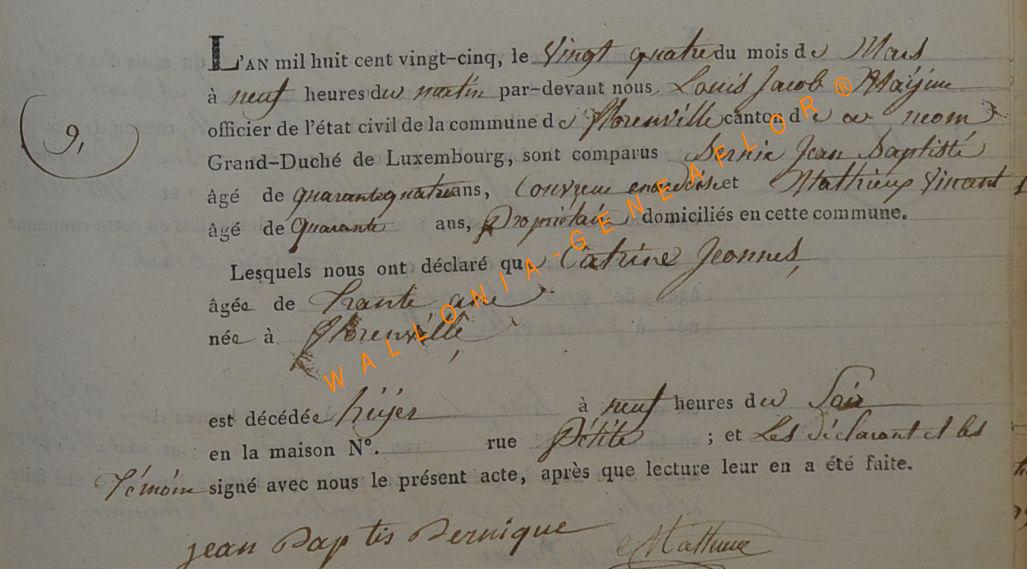 L'AN mil huit cent vingt-cinq, le Vingt quatre du mois de Mars
à neuf heures du matin par-devant nous Louis Jacob
officier de l'état civil de la commune de florenville canton de
Grand-Duché de Luxembourg, sont comparus Jean Baptiste
âgé de quarantequatre ans, et Mathieux Vincent
âgé de quarante ans, Propriétair domiciliés en cette commune.
Lesquels nous ont déclaré que Catrine Jeonnes,
âgée de trante ans
née à florenville,
est décédée hiÿer à neuf heures du Soir
en la maison N°. rue pétite ; et Les déclarant et les
témoin signé avec nous le présent acte, après que lecture leur en a été faite.
9,
jean Baptis Dernique Mathieu
WALLONIA-GENEAFLOR ®